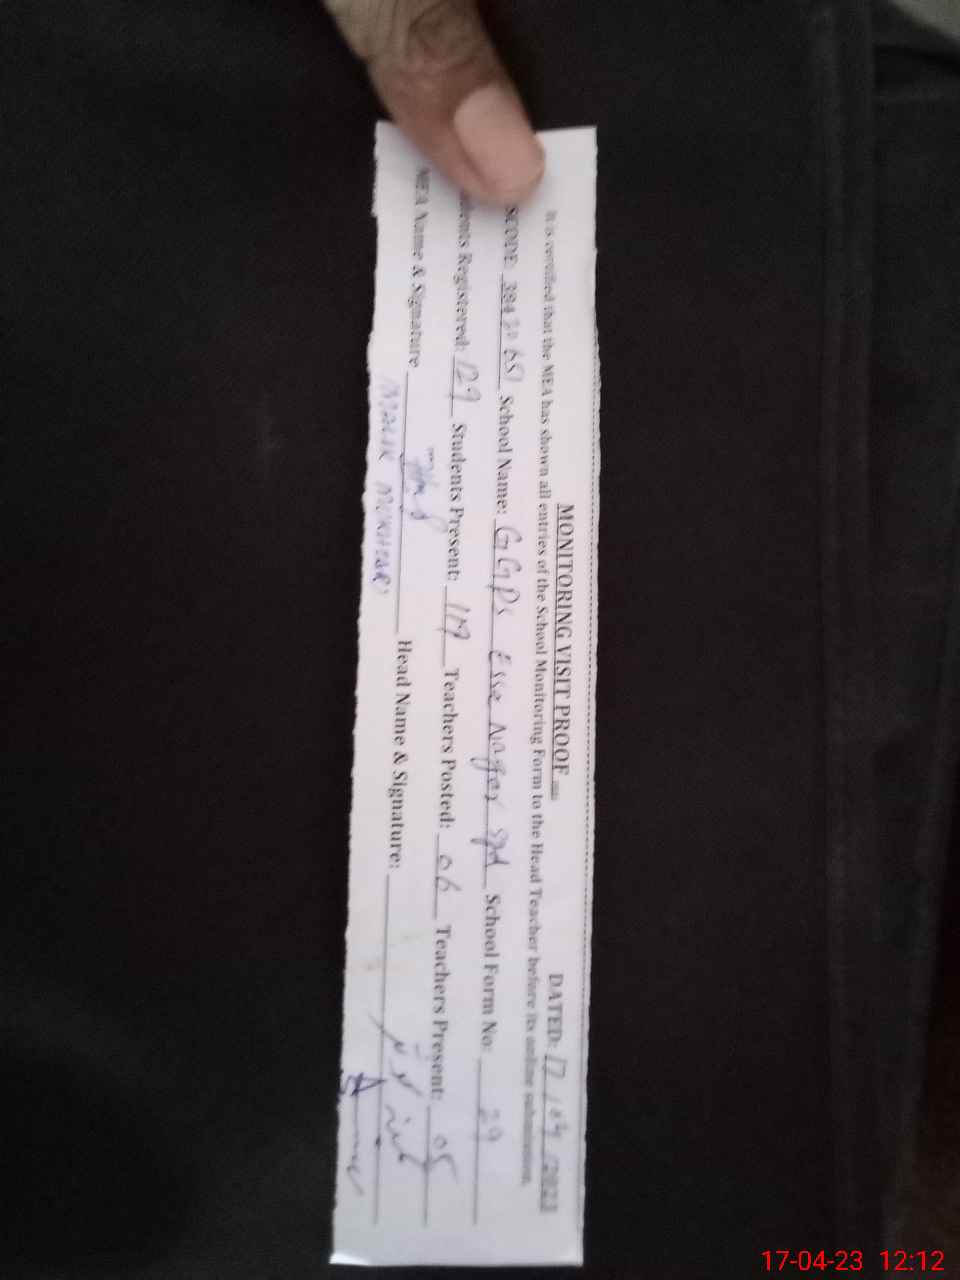 MONITORING VISIT PROOF
DATED: 17/04/2023
It is certified that the MEA has shown all entries of the School Monitoring Form to the Head Teacher before its online submission.
SCODE: 38420651 School Name: GGPS Essa Nagar sgd School Form No: 29
Registered: 129 Students Present: 119 Teachers Posted: 06 Teachers Present: 05
MEA Name & Signature Head Name & Signature:
17-04-23 12:12